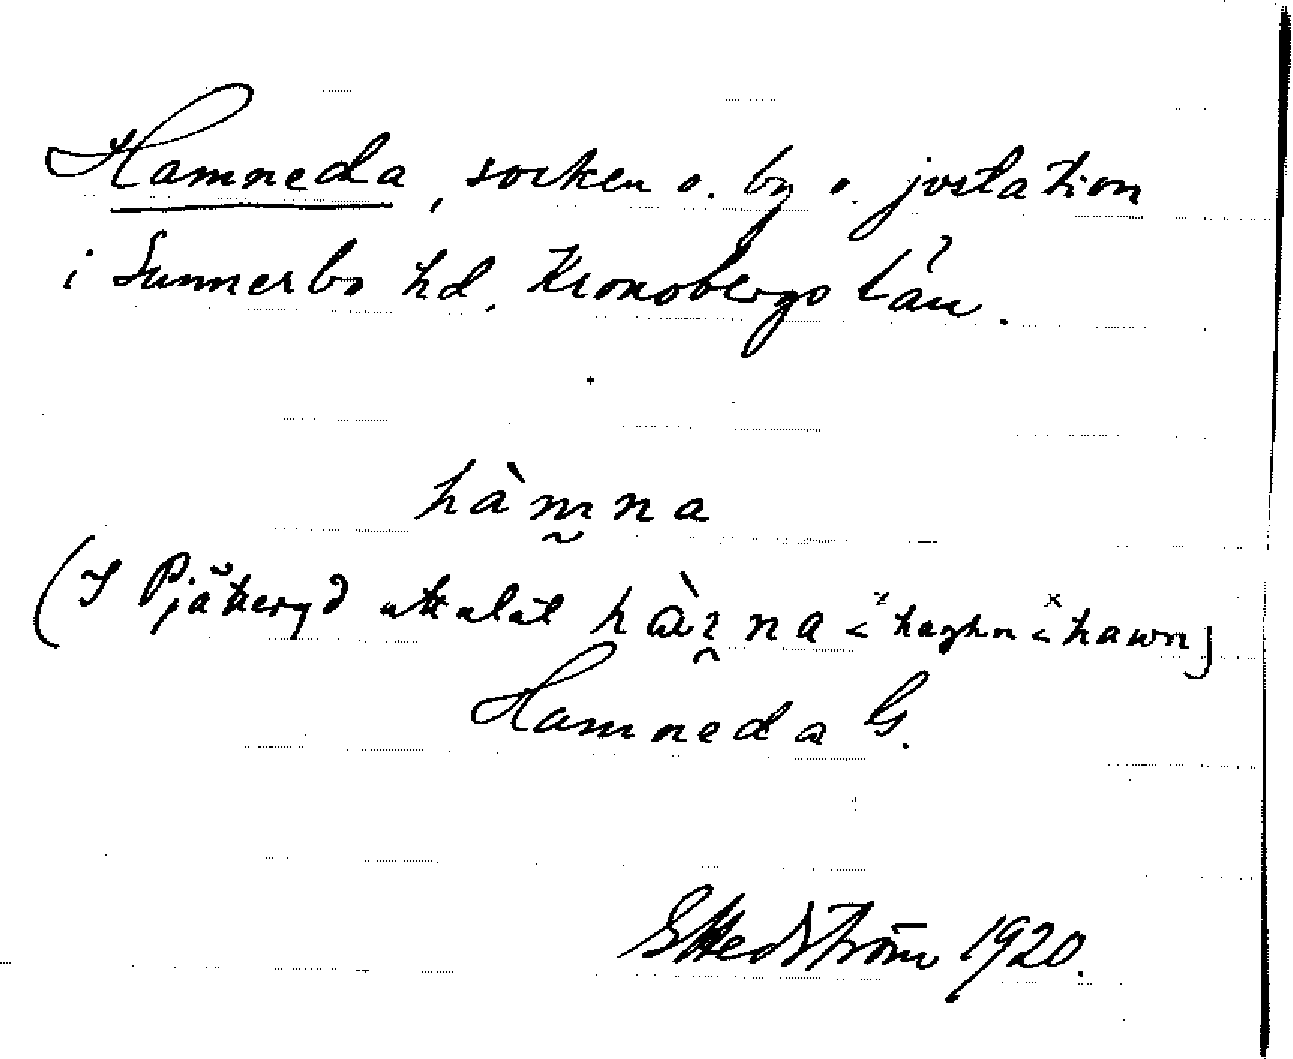 Hamneda, socken o. by o. jvstation
i Sunnerbo hd. Kronobergs län.
hàmna
(I Pjätteryd uttalat hàna < ˣhaghn < ˣhawn)
Hamneda G.
G Hedström 1920.